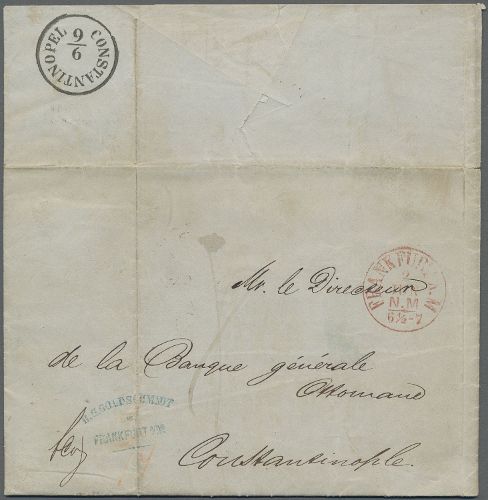 CONSTANTINOPEL
9
6
FRANKFURT A.M
2
N.M
6½-7
Mr. le Directeur
de la Banque générale
Ottomane
Constantinople.
B.H. GOLDSCHMIDT
FRANKFURT a/M